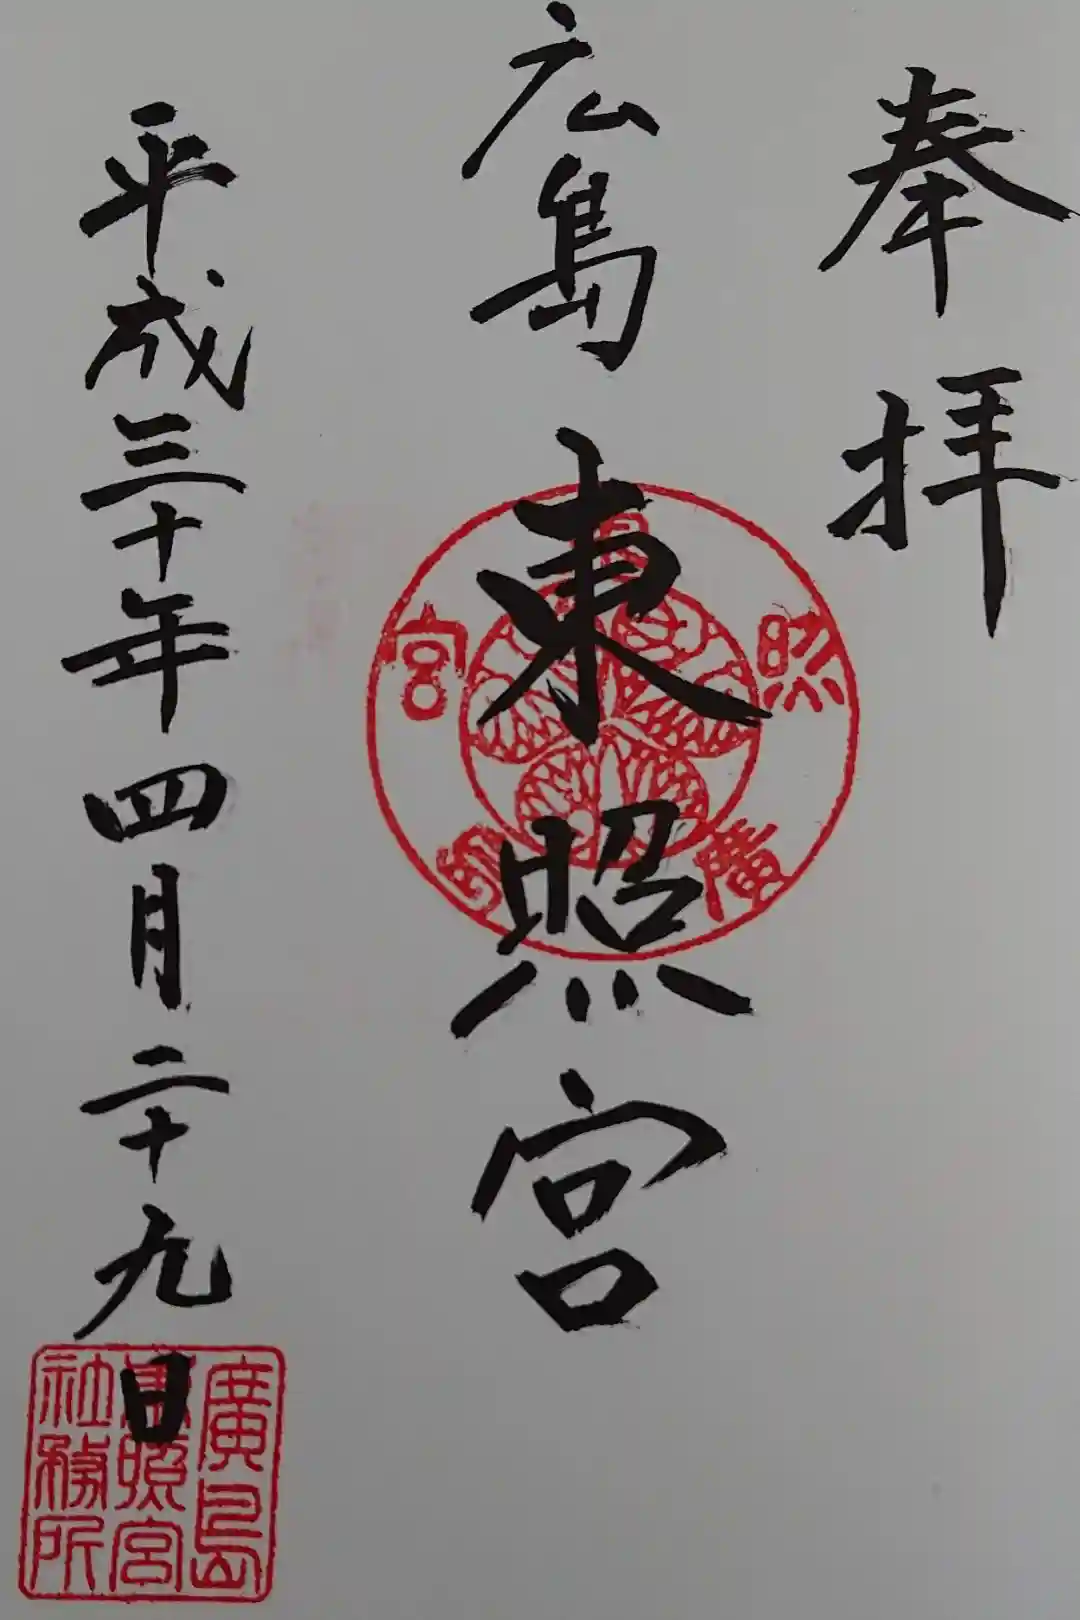 奉拝
広島東照宮
平成三十年四月二十九日
廣島東照宮
廣島
東照宮
社務所